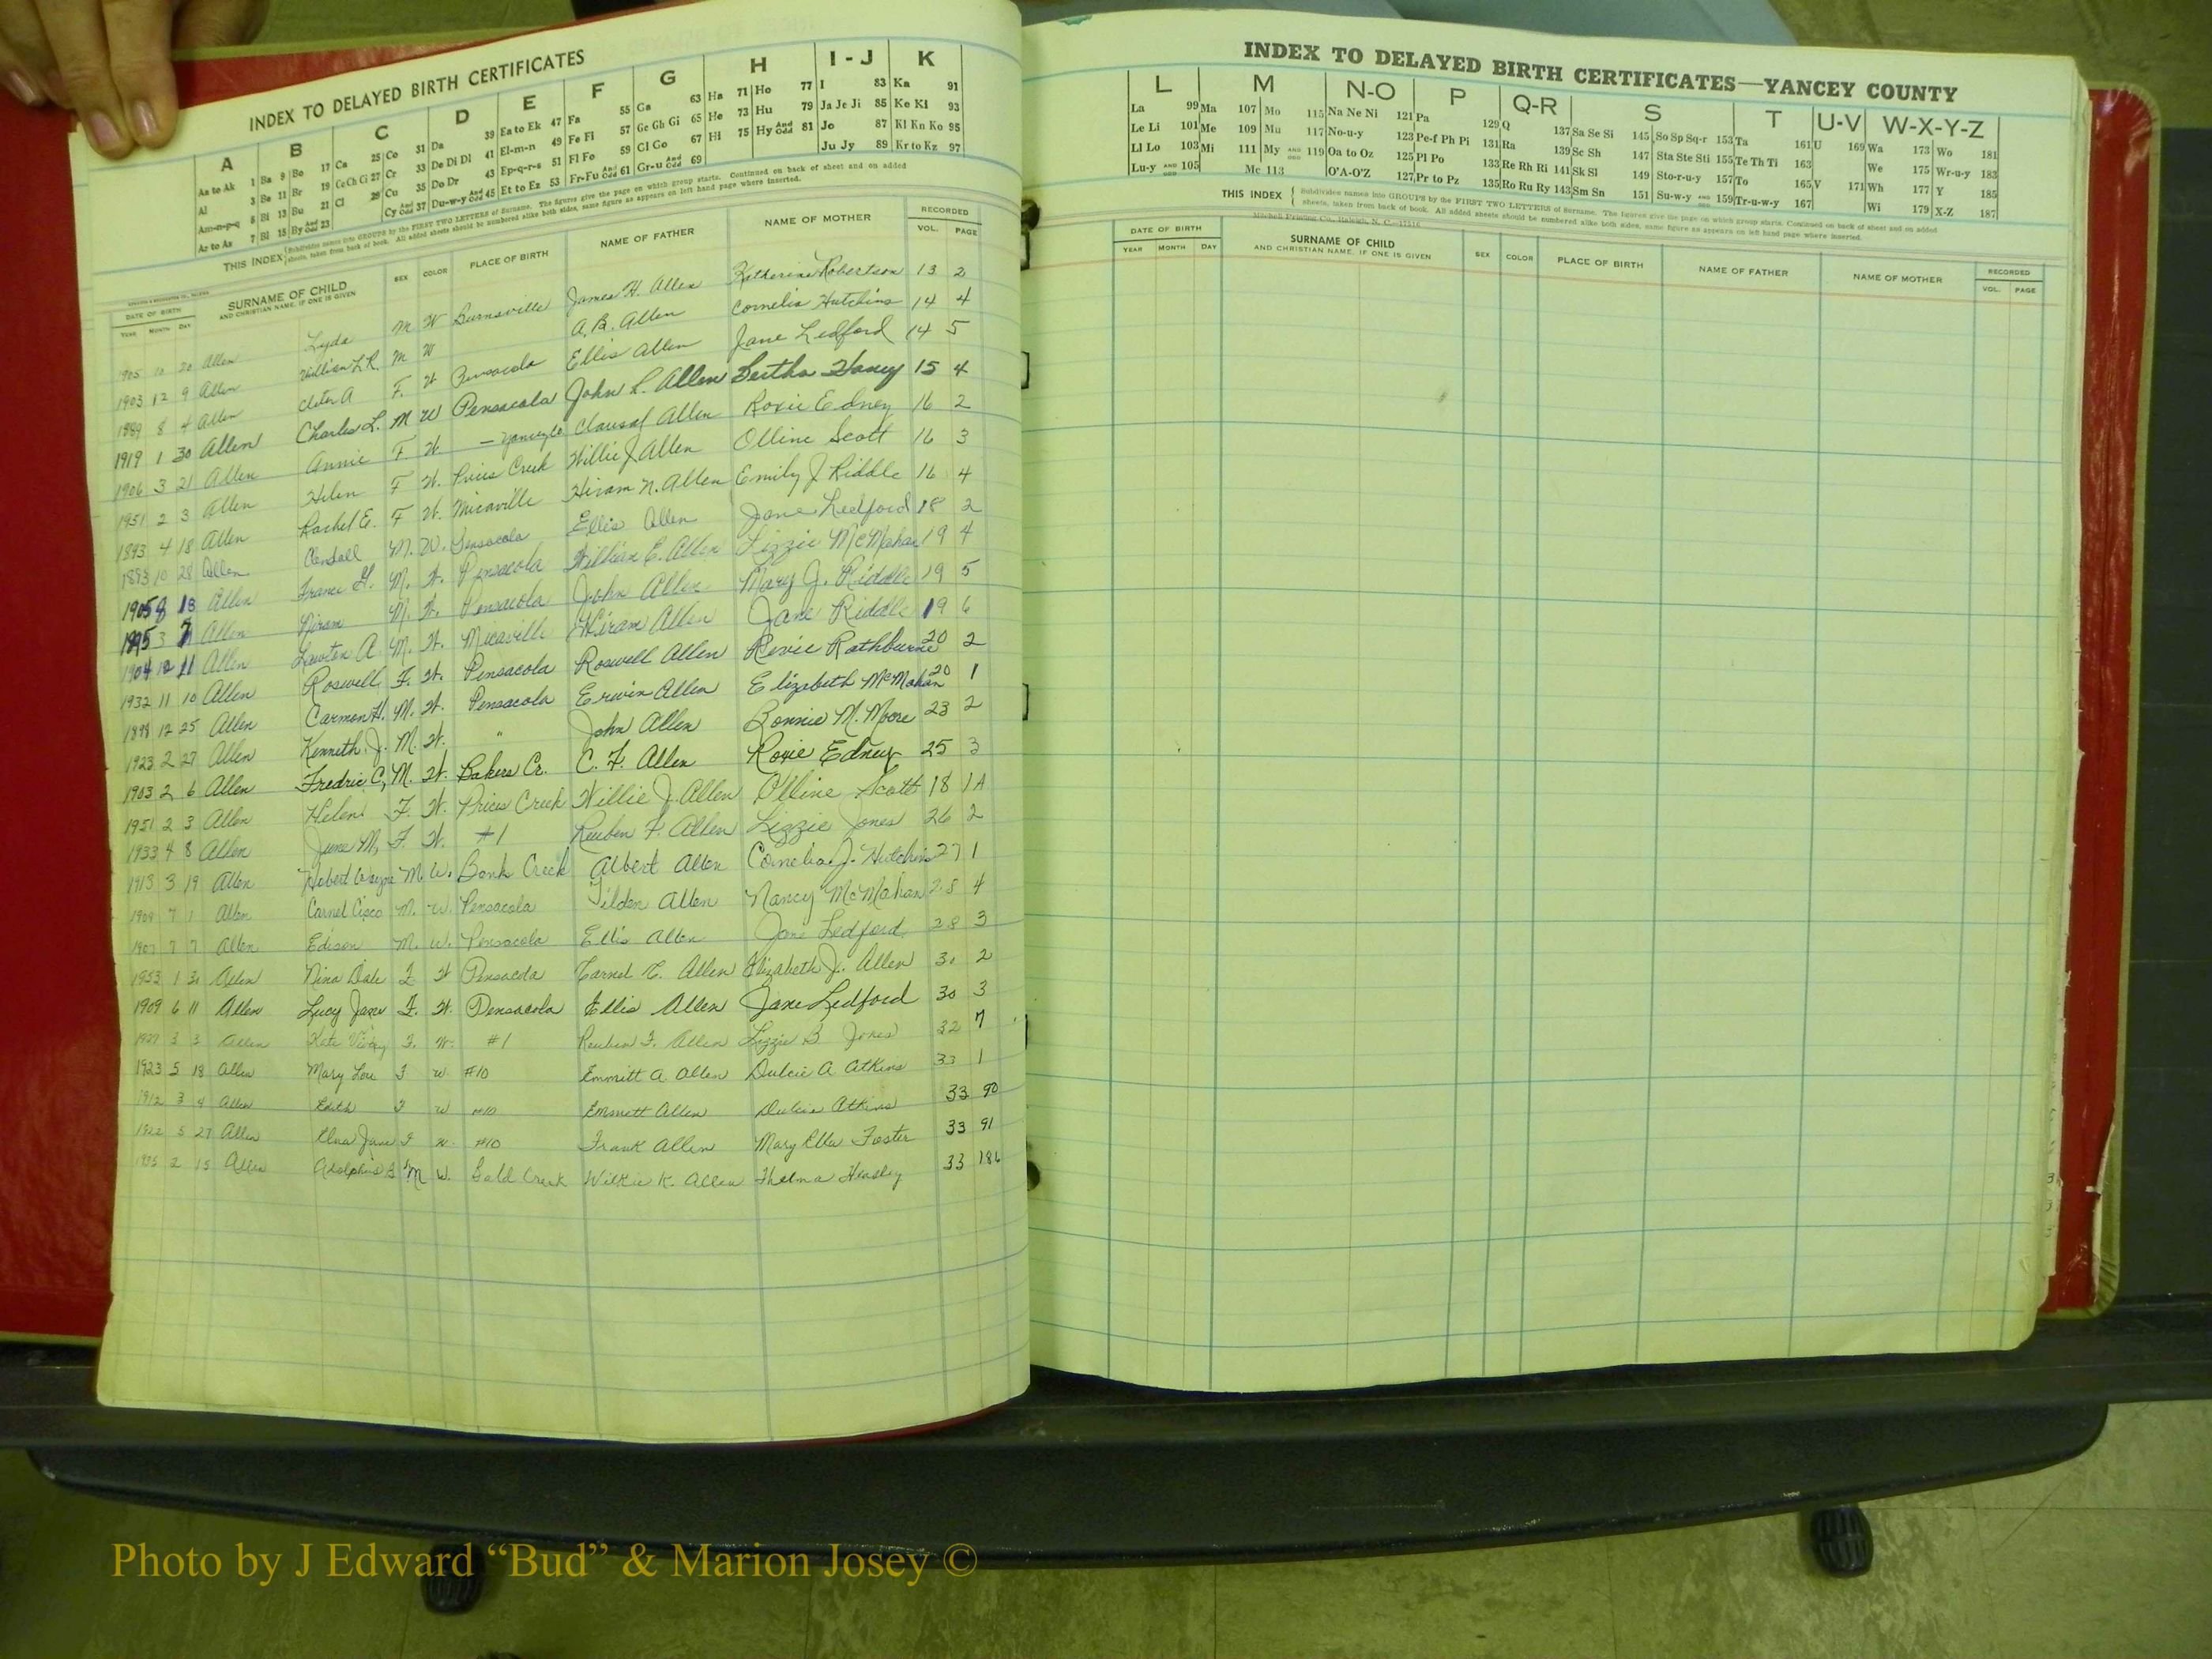 INDEX TO DELAYED BIRTH CERTIFICATES
A B C D E F G H I - J K
Aa to Ak 1 Ba 9 Bo 17 Ca 25 Co 31 Da 39 Ea to Ek 47 Fa 55 Ga 63 Ha 71 Ho 77 I 83 Ka 91
Al 3 Be 11 Br 19 Ce Ch Ci 27 Cr 33 De Di Dl 41 El-m-n 49 Fe Fi 57 Ge Gh Gi 65 He 73 Hu 79 Ja Je Ji 85 Ke Ki 93
Am-n-p-q 5 Bi 13 Bu 21 Cl 29 Cu 35 Do Dr 43 Ep-q-r-s 51 Fl Fo 59 Gl Go 67 Hi 75 Hy And Odd 81 Jo 87 Kl Kn Ko 95
Ar to Az 7 Bl 15 By And Odd 23 Cy And Odd 37 Du-w-y And Odd 45 Et to Ez 53 Fr-Fu And Odd 61 Gr-u And Odd 69 Ju Jy 89 Kr to Kz 97
THIS INDEX Subdivides names into GROUPS by the FIRST TWO LETTERS of Surname. The figures give the page on which group starts. Continued on back of sheet and on added
sheets, taken from back of book. All added sheets should be numbered alike both sides, same figure as appears on left hand page where inserted.
DATE OF BIRTH SURNAME OF CHILD SEX COLOR PLACE OF BIRTH NAME OF FATHER NAME OF MOTHER RECORDED
YEAR MONTH DAY AND CHRISTIAN NAME, IF ONE IS GIVEN VOL. PAGE
1905 10 20 Allen Lyda M W Burnsville James H. Allen Katherine Robertson 13 2
1903 12 9 Allen William L.R. M W A. B. Allen Cornelia Hutchins 14 4
1889 8 4 Allen A F. W Pensacola Ellis Allen Jane Ledford 14 5
1919 1 30 Allen Charles L. M W Pensacola John L. Allen Bertha Haney 15 4
1906 3 21 Allen Annie F. W — Yancey Co Allen Roxie Edney 16 2
1951 2 3 Allen Helen F W. Prices Creek Willie J Allen Olline Scott 16 3
1893 4 18 Allen Rachel E. F W. Micaville Hiram N. Allen Emily J Riddle 16 4
1893 10 28 Allen M. W. Pensacola Ellis Allen Jane Ledford 18 2
1905 8 13 Allen M. W. Pensacola William E. Allen Lizzie McMahan 19 4
1895 3 7 Allen M. W. Pensacola John Allen Mary J. Riddle 19 5
1904 12 11 Allen Lawton A M. W. Micaville Hiram Allen Jane Riddle 19 6
1932 11 10 Allen Roswell F. W. Pensacola Roswell Allen Revie Rathburne 20 2
12 25 Allen Carmon H. M. W. Pensacola Erwin Allen Elizabeth McMahan 20 1
1923 2 27 Allen Kenneth J. M. W. " John Allen Bonnie M. Moore 23 2
1903 2 6 Allen Fredric C, M. W. Bakers Cr. C. F. Allen Roxie Edney 25 3
1951 2 3 Allen Helen F. W. Prices Creek Willie J. Allen Olline Scott 18 1A
1933 4 8 Allen June M, F. W. #1 Reuben F. Allen Lizzie Jones 26 2
1913 3 19 Allen Hobert M. W. Creek Albert Allen Cornelia J. Hutchins 27 1
1909 7 1 Allen Carnel Cisco M. W. Pensacola Tilden Allen Nancy McMahan 28 4
1907 7 7 Allen Edison M. W. Pensacola Ellis Allen Jane Ledford 28 3
1953 1 Allen Nina Dale F W Pensacola Carnel C. Allen Elizabeth J. Allen 2
1909 6 11 Allen Lucy Jane F. W. Pensacola Ellis Allen Jane Ledford 30 3
3 3 Allen Kate F. W. #1 Reuben F. Allen Lizzie B Jones 32 7
1923 5 18 Allen Mary Lou F W #10 Emmitt A. Allen Dulcie A Atkins 33 1
1912 3 4 Allen Edith F W #10 Emmett Allen Dulcie Atkins 33 90
1922 5 27 Allen Jane F W. #10 Frank Allen Mary Ella Foster 33 91
2 15 Allen Adolphus M W. Bald Creek Wilkie K. Allen Thelma Hensley 33 186
INDEX TO DELAYED BIRTH CERTIFICATES—YANCEY COUNTY
L M N-O P Q-R S T U-V W-X-Y-Z
La 99 Ma 107 Mo 115 Na Ne Ni 121 Pa 129 Q 137 Sa Se Si 145 So Sp Sq-r 153 Ta 161 U 169 Wa 173 Wo 181
Le Li 101 Me 109 Mu 117 No-u-y 123 Pe-f Ph Pi 131 Ra 139 Sc Sh 147 Sta Ste Sti 155 Te Th Ti 163 We 175 Wr-u-y 183
Ll Lo 103 Mi 111 My AND ODD 119 Oa to Oz 125 Pl Po 133 Re Rh Ri 141 Sk Sl 149 Sto-r-u-y 157 To 165 V 171 Wh 177 Y 185
Lu-y AND ODD 105 Mc 113 O'A-O'Z 127 Pr to Pz 135 Ro Ru Ry 143 Sm Sn 151 Su-w-y AND ODD 159 Tr-u-w-y 167 Wi 179 X-Z 187
THIS INDEX Subdivides names into GROUPS by the FIRST TWO LETTERS of Surname. The figures give the page on which group starts. Continued on back of sheet and on added
sheets, taken from back of book. All added sheets should be numbered alike both sides, same figure as appears on left hand page where inserted.
Mitchell Printing Co., Raleigh, N. C.
DATE OF BIRTH SURNAME OF CHILD SEX COLOR PLACE OF BIRTH NAME OF FATHER NAME OF MOTHER RECORDED
YEAR MONTH DAY AND CHRISTIAN NAME, IF ONE IS GIVEN VOL. PAGE
Photo by J Edward “Bud” & Marion Josey ©